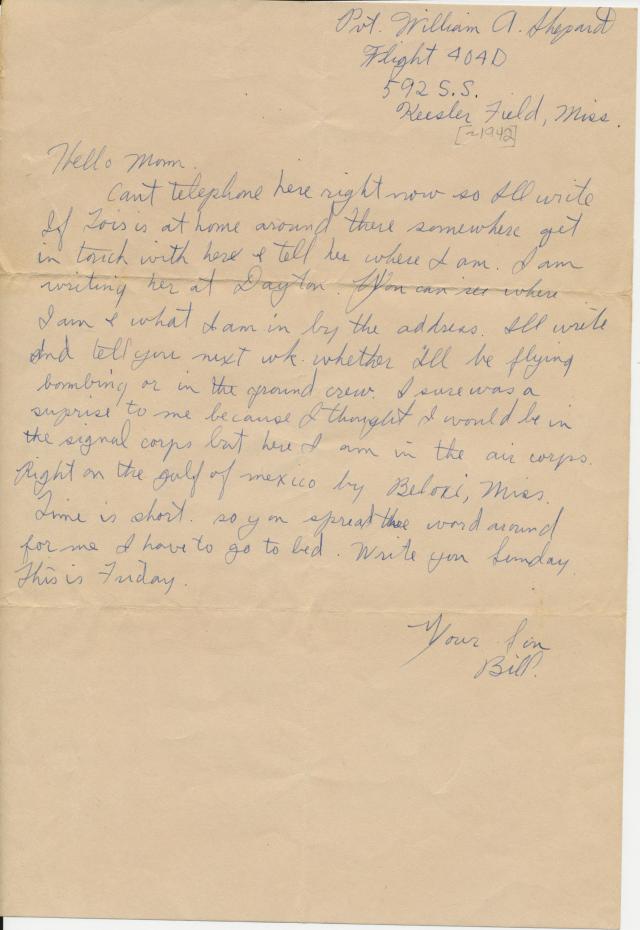 Pvt. William A. Shepard
Flight 404D
592 S.S.
Keesler Field, Miss.
[~1942]
Hello Mom.
Cant telephone here right now so I'll write
If Lois is at home around there somewhere get
in touch with here & tell her where I am. I am
writing her at Dayton. You can see where
I am & what I am in by the address. I'll write
and tell you next wk. whether I'll be flying
bombing or in the ground crew. I sure was a
suprise to me because I thought I would be in
the signal corps but here I am in the air corps.
Right on the gulf of mexico by Beloxi, Miss.
Time is short. so you spread the word around
for me I have to go to bed. Write you Sunday.
This is Friday.
Your Son
Bill.